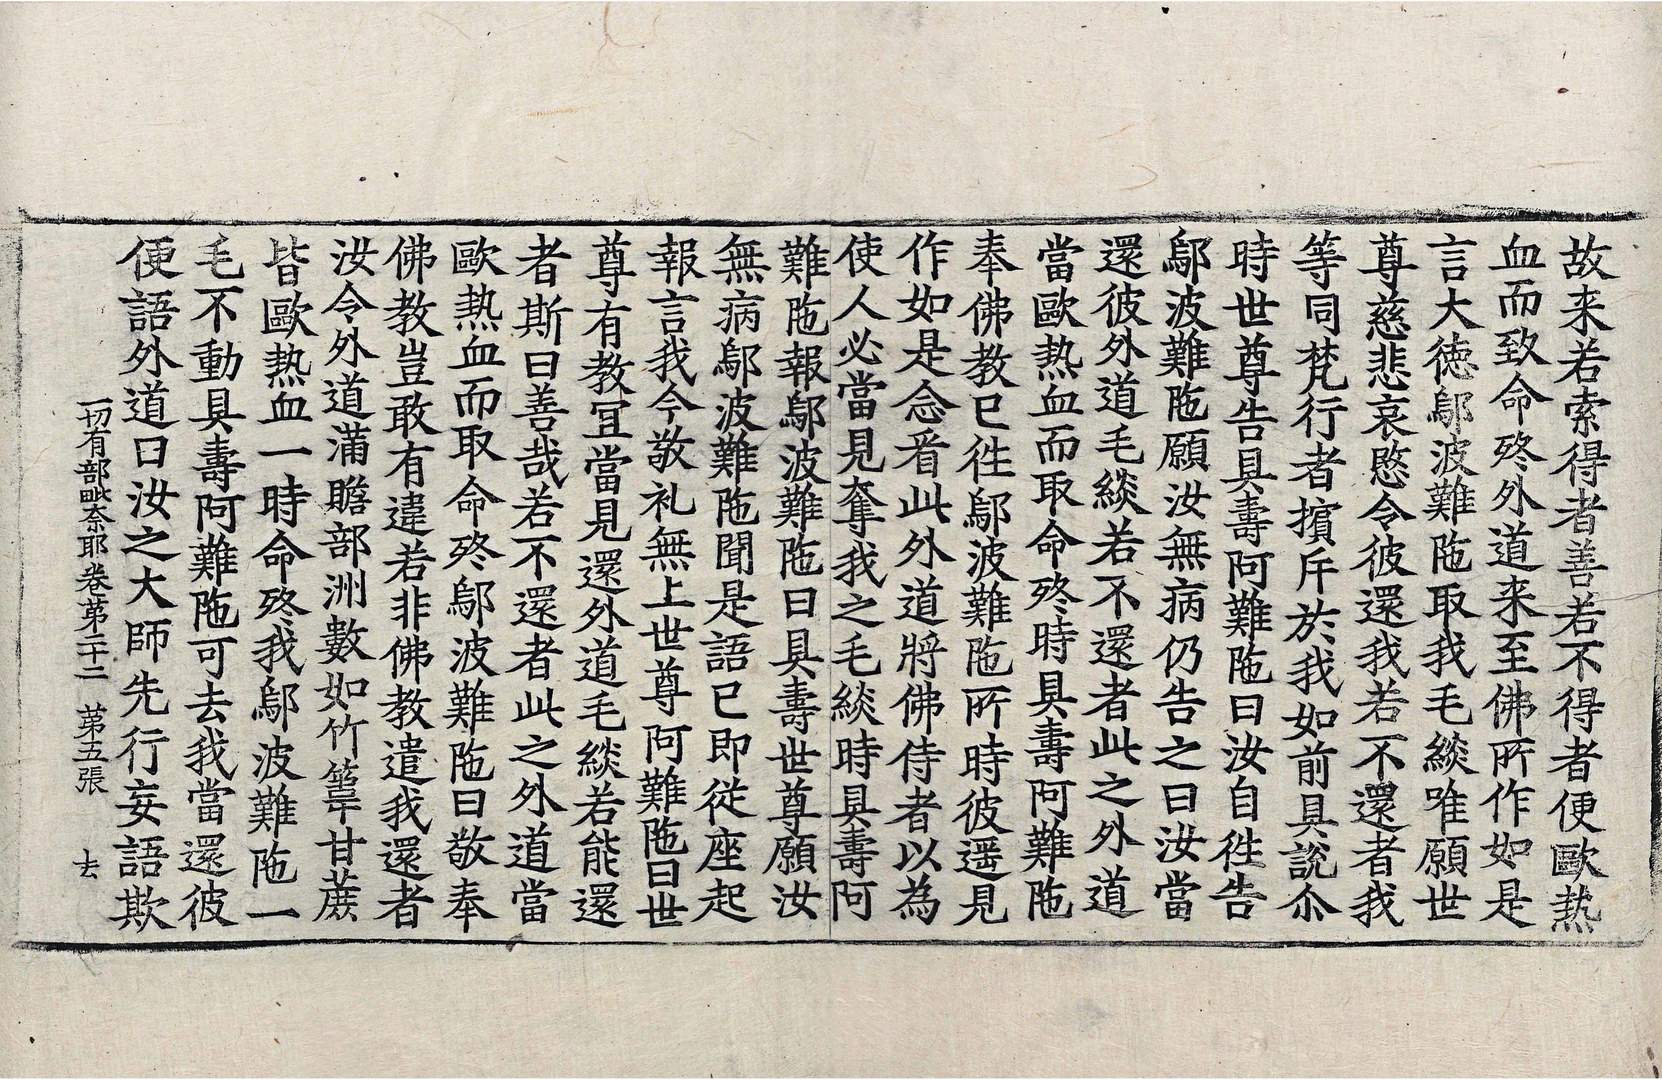 故来若索得者善若不得者便歐熱
血而致命終外道来至佛所作如是
言大徳鄔波難陁取我毛緂唯願世
尊慈悲哀愍令彼還我若不還者我
等同梵行者擯斥於我如前具說尒
時世尊告具壽阿難陁曰汝自徃告
鄔波難陁願汝無病仍告之曰汝當
還彼外道毛緂若不還者此之外道
當歐熱血而取命終時具壽阿難陁
奉佛教已徃鄔波難陁所時彼遥見
作如是念看此外道將佛侍者以為
使人必當見奪我之毛緂時具壽阿
難陁報鄔波難陁曰具壽世尊願汝
無病鄔波難陁聞是語已即從座起
報言我今敬礼無上世尊阿難陁曰世
尊有教冝當見還外道毛緂若能還
者斯曰善哉若不還者此之外道當
歐熱血而取命終鄔波難陁曰敬奉
佛教豈敢有違若非佛教遣我還者
汝令外道滿贍部洲數如竹䓶甘蔗
皆歐熱血一時命終我鄔波難陁一
毛不動具壽阿難陁可去我當還彼
便語外道曰汝之大師先行妄語欺
一切有部毗奈耶卷第二十二　第五張　去